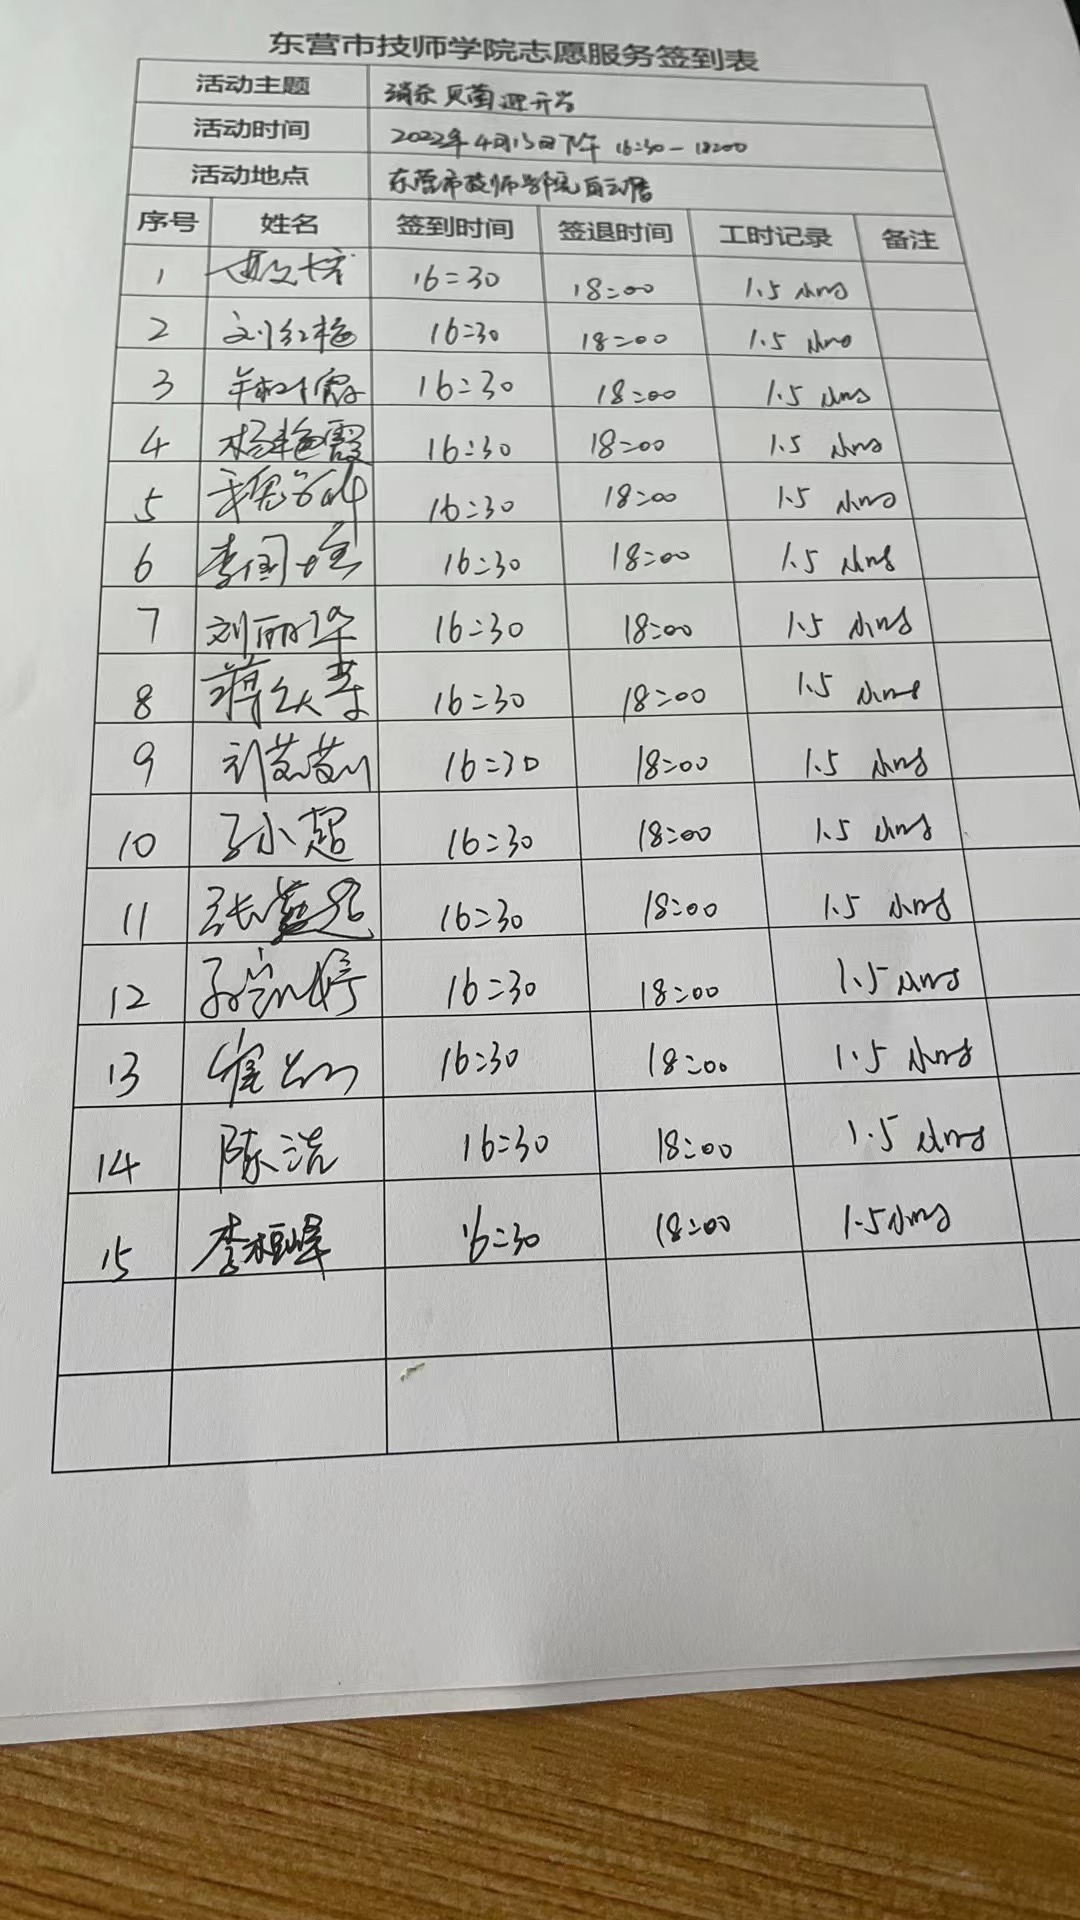 东营市技师学院志愿服务签到表
活动主题 消杀灭菌迎开学
活动时间 2022年4月13日下午 16:30-18:00
活动地点 东营市技师学院
序号 姓名 签到时间 签退时间 工时记录 备注
1 16:30 18:00 1.5小时
2 刘红艳 16:30 18:00 1.5小时
3 16:30 18:00 1.5小时
4 杨艳霞 16:30 18:00 1.5小时
5 16:30 18:00 1.5小时
6 李国 16:30 18:00 1.5小时
7 刘丽华 16:30 18:00 1.5小时
8 蒋 16:30 18:00 1.5小时
9 16:30 18:00 1.5小时
10 小超 16:30 18:00 1.5小时
11 张 16:30 18:00 1.5小时
12 婷 16:30 18:00 1.5小时
13 崔 16:30 18:00 1.5小时
14 陈浩 16:30 18:00 1.5小时
15 李桓峰 16:30 18:00 1.5小时